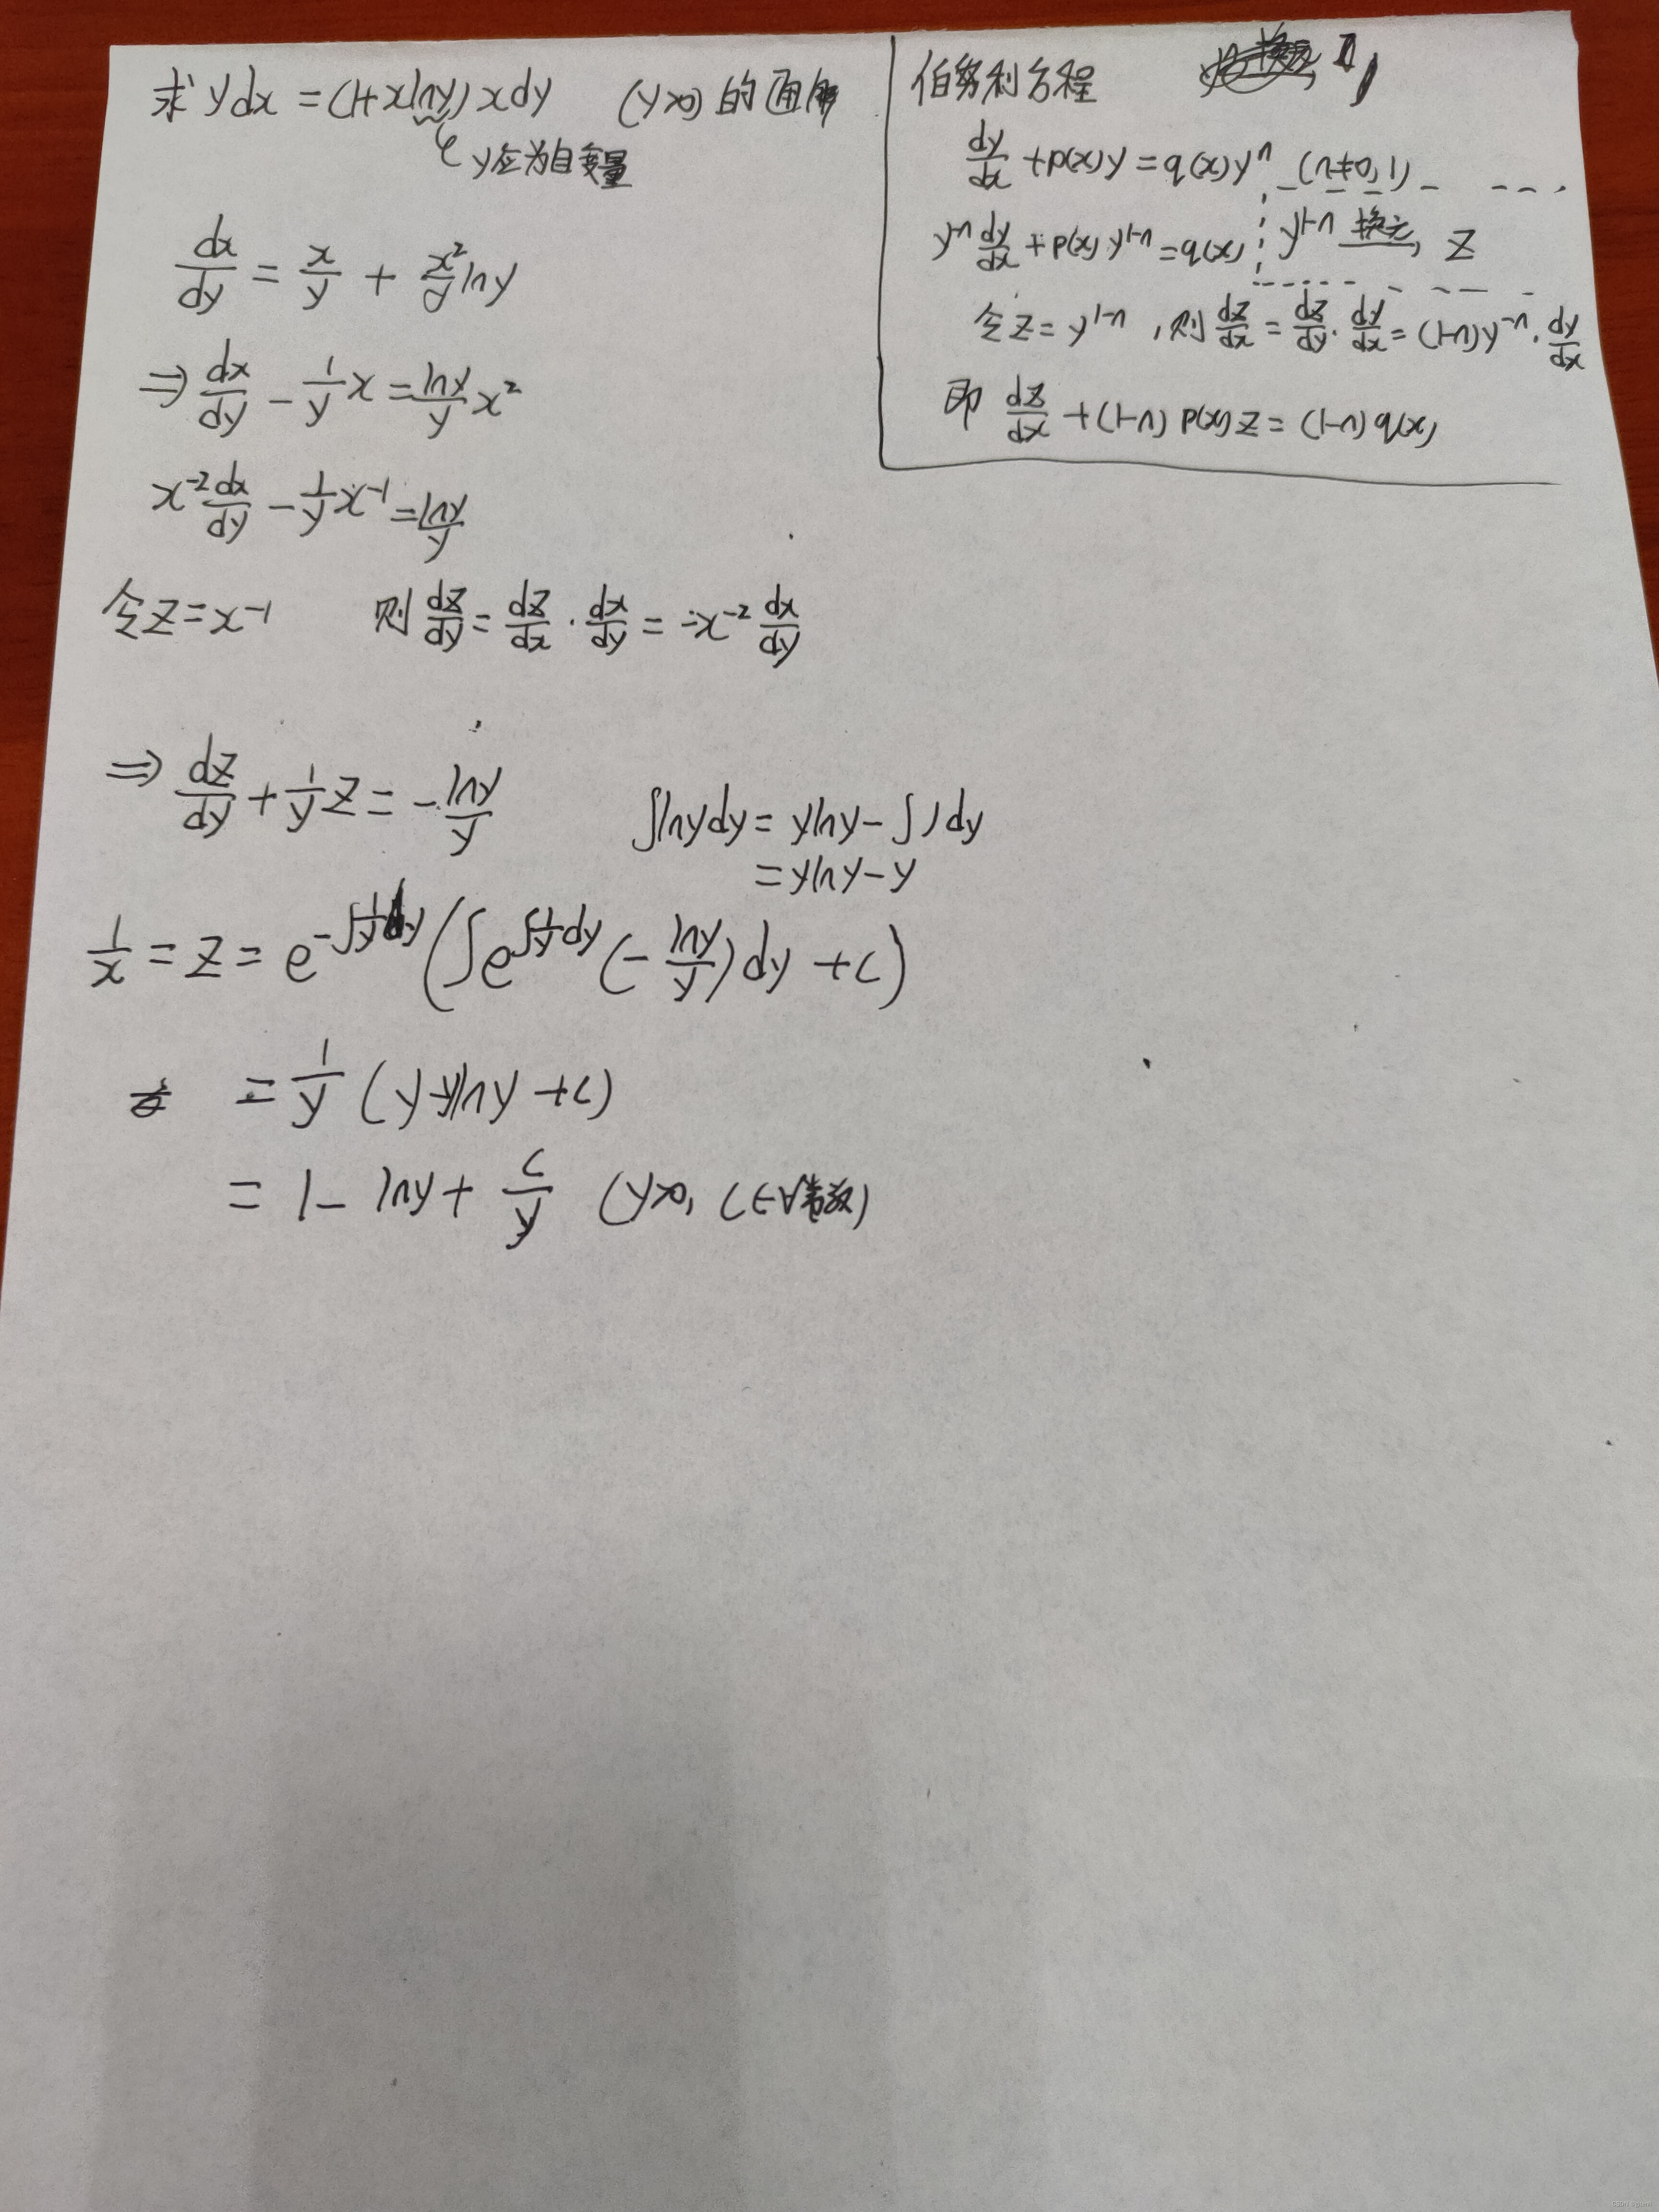 求 ydx = (1+xlny) xdy (y>0) 的通解
y应为自变量
dx/dy = x/y + x²/y lny
⇒ dx/dy - 1/y x = lny/y x²
x⁻² dx/dy - 1/y x⁻¹ = lny/y
令 z = x⁻¹ 则 dz/dy = dz/dx · dx/dy = -x⁻² dx/dy
⇒ dz/dy + 1/y z = - lny/y
∫lnydy = ylny - ∫1dy
= ylny - y
1/x = z = e^(-∫1/y dy) (∫e^(∫1/y dy) (- lny/y) dy + c)
= 1/y (y-ylny+c)
= 1 - lny + c/y (y>0, C∈∀常数)
伯努利方程
dy/dx + p(x)y = q(x)yⁿ (n≠0,1)
y⁻ⁿ dy/dx + p(x) y¹⁻ⁿ = q(x)
y¹⁻ⁿ 换元 z
令 z = y¹⁻ⁿ, 则 dz/dx = dz/dy · dy/dx = (1-n)y⁻ⁿ · dy/dx
即 dz/dx + (1-n) p(x) z = (1-n) q(x)